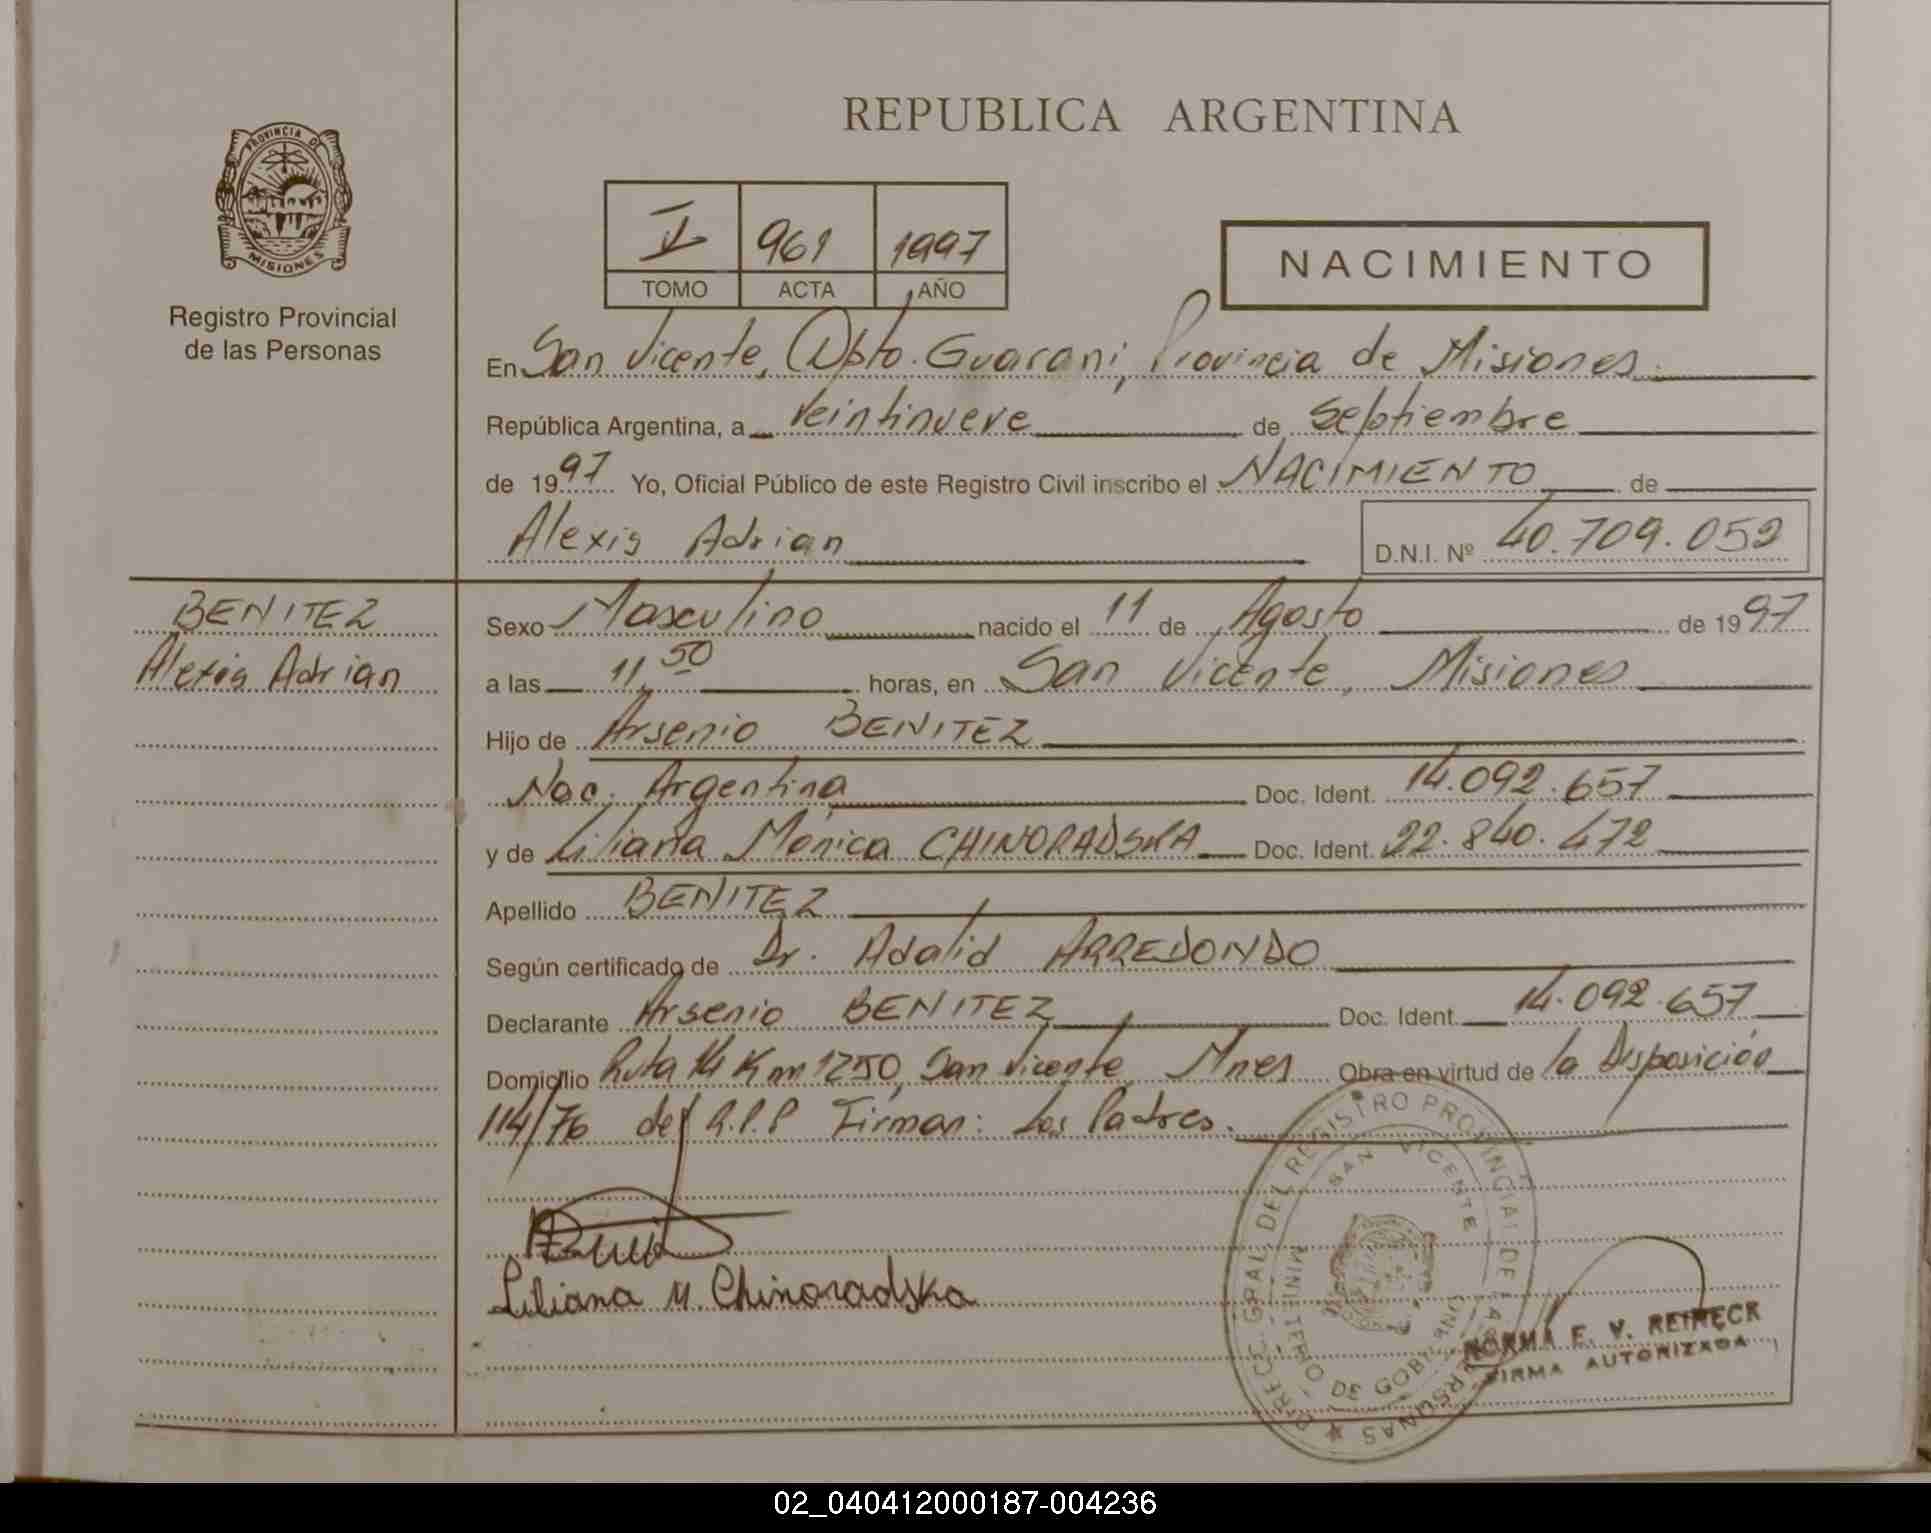 PROVINCIA DE
MISIONES
Registro Provincial
de las Personas
REPUBLICA ARGENTINA
V 961 1997
TOMO ACTA AÑO
NACIMIENTO
En San Vicente, Dpto. Guarani, Provincia de Misiones.
República Argentina, a veintinueve de Septiembre
de 1997 Yo, Oficial Público de este Registro Civil inscribo el NACIMIENTO de
Alexis Adrian D.N.I. Nº 40.709.052
BENITEZ
Alexis Adrian
Sexo Masculino nacido el 11 de Agosto de 1997
a las 11,50 horas, en San Vicente, Misiones
Hijo de Arsenio BENITEZ
Nac. Argentina Doc. Ident. 14.092.657
y de Liliana Mónica CHINORADSKA Doc. Ident. 22.840.472
Apellido BENITEZ
Según certificado de Dr. Adalid ARREDONDO
Declarante Arsenio BENITEZ Doc. Ident. 14.092.657
Domicilio Ruta 14 Km 1250, San Vicente, Mnes Obra en virtud de la Disposición
114/76 del R.P.P Firman: Los Padres.
Liliana M. Chinoradska
DIRECC. GRAL. DEL REGISTRO PROVINCIAL DE LAS PERSONAS
SAN VICENTE
MINISTERIO DE GOBIERNO
NORMA E. V. REINECK
FIRMA AUTORIZADA
02_040412000187-004236